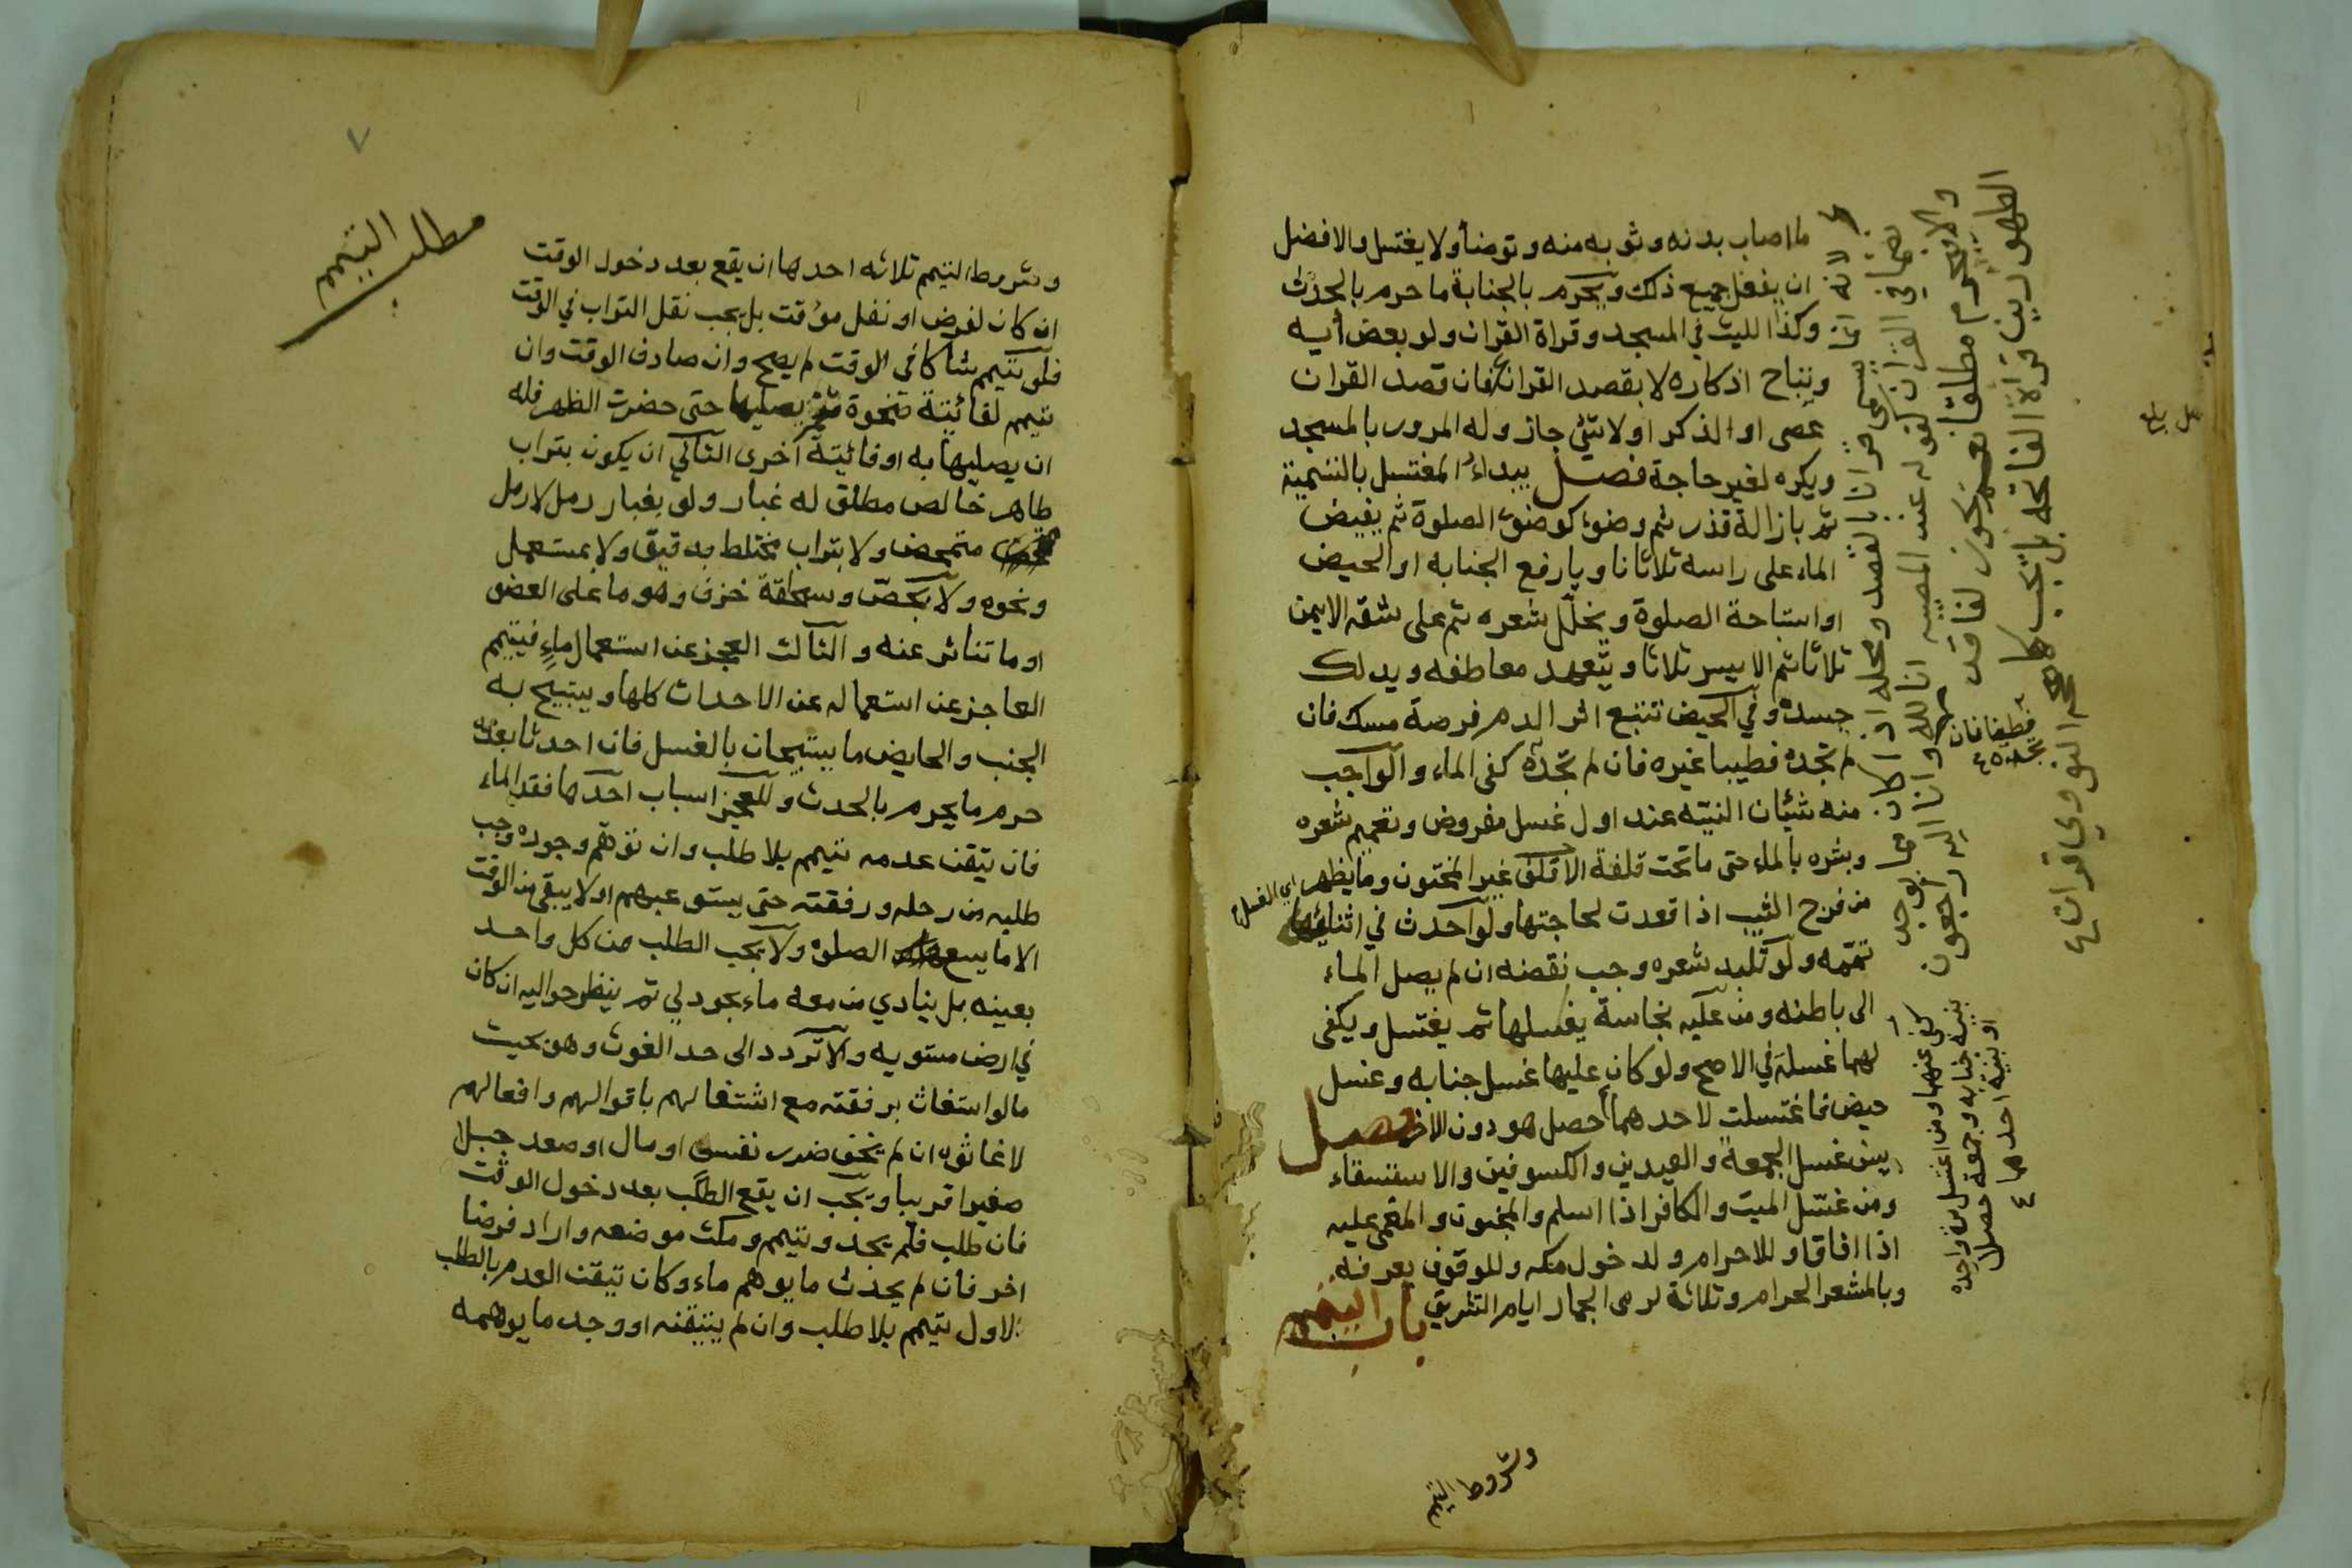 ما اصاب بدنه وثوبه منه وتوضأ ولا يغتسل والافضل
ان يفعل جميع ذلك ويحرم بالجنابة ما حرم بالحدث
وكذا اللبث في المسجد وقراة القران ولو بعض أيه
وتباح اذكاره لا بقصد القران فان قصد القران
عصى او الذكر او لا شئ جاز وله المرور بالمسجد
ويكره لغير حاجة فصل يبداء المغتسل بالتسمية
ثم بازالة قذر ثم وضوء كوضوء الصلوة ثم يفيض
الماء على راسه ثلاثا ناويا رفع الجنابه او الحيض
او استباحة الصلوة ويخلل شعره ثم على شقه الايمن
ثلاثا ثم الايسر ثلاثا ويتعهد معاطفه ويدلك
جسده وفي الحيض تتبع اثر الدم فرصة مسك فان
لم تجده فطيبا غيره فان لم تجده كفى الماء والواجب
منه شيئان النيته عند اول غسل مفروض وتعميم شعره
وبشره بالماء حتى ما تحت قلفة الاقلف غير المختون وما يظهر
من فرج الثيب اذا قعدت لحاجتها ولو احدث في اثنائها
اي الغسل
تممه ولو تلبد شعره وجب نقضه ان لم يصل الماء
الى باطنه ومن عليه نجاسة يغسلها ثم يغتسل ويكفى
لهما غسلة في الاصح ولو كان عليها غسل جنابه وغسل
حيض فاغتسلت لاحدهما حصل هو دون الاخر فصل
يسن غسل الجمعة والعيدين والكسوفين والاستسقاء
ومن غسل الميت والكافر اذا اسلم والمجنون والمغمى عليه
اذا افاق وللاحرام ولدخول مكه وللوقوف بعرفه
وبالمشعر الحرام وثلاثة لرمى الجمار ايام التشريق باب التيمم
وشروط التيمم
لانه انما يسمى قرانا بالقصد ومحله اذا كان
نظمها في القران كقوله عند المصيبه انا لله وانا اليه راجعون
والا فيحرم مطلقا نعم يجوز لفاقد
الطهورين قراة الفاتحة بل تجب كما صححه النووي
فطيفا فان
تجده
كفى عنهما ومن اغتسل مرة واحده
بنية جنابه وجمعه حصلا
او بنية احدهما
٧
مطلب التيمم
وشروط التيمم ثلاثه احدها ان يقع بعد دخول الوقت
ان كان لفرض او نفل مؤقت بل يجب نقل التراب في الوقت
فلو تيمم شاكا في الوقت لم يصح وان صادف الوقت وان
تيمم لفائيتة ضحوة فلم يصليها حتى حضرت الظهر فله
ان يصليها به او فائيتة اخرى الثاني ان يكون بتراب
طاهر خالص مطلق له غبار ولو بغبار رمل لا رمل
متمحض ولا بتراب مختلط بدقيق ولا بمستعمل
ونحوه ولا بجص وسحاقة خزف وهو ما على العضو
او ما تناثر عنه والثالث العجز عن استعمال ماء فيتيمم
العاجز عن استعماله عن الاحداث كلها ويبتيح به
الجنب والحايض ما يبتيحان بالغسل فان احدثا بعده
حرم ما يحرم بالحدث وللعجز اسباب احدها فقد الماء
فان تيقن عدمه تيمم بلا طلب وان توهم وجوده وجب
طلبه من رحله ورفقته حتى يستوعبهم او لا يبقى من الوقت
الا ما يسع الصلوة ولا يجب الطلب من كل واحد
بعينه بل ينادي من معه ماء يجود لي ثم ينظر حواليه ان كان
في ارض مستويه والا تردد الى حد الغوث وهو بحيث
ما لو استغاث برفقته مع اشتغالهم باقوالهم وافعالهم
لاغاثوه ان لم يخف ضرر نفس او مال او صعد جبلا
صغيرا قريبا ويجب ان يقع الطلب بعد دخول الوقت
فان طلب فلم يجد وتيمم ومكث موضعه واراد فرضا
اخر فان لم يحدث ما يوهم ماء وكان تيقن العدم بالطلب
الاول تيمم بلا طلب وان لم يتيقنه او وجد ما يوهمه